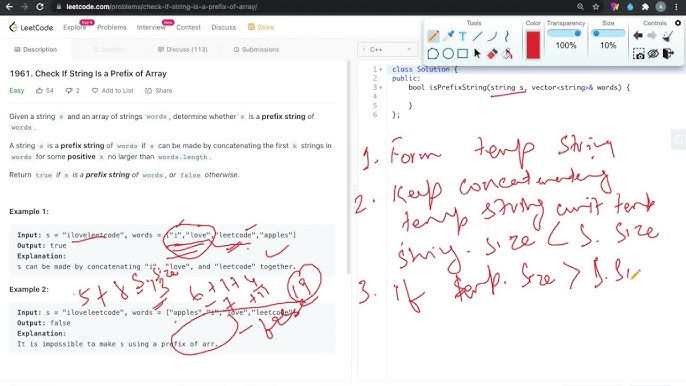 leetcode.com/problems/check-if-string-is-a-prefix-of-array/
LeetCode
Explore
Problems
Interview
Contest
Discuss
Description
Solution
Discuss (113)
Submissions
C++
Tools
Transparency
Size
Controls
100%
10%
1961. Check If String Is a Prefix of Array
Easy
54
2
Add to List
Share
Given a string s and an array of strings words, determine whether s is a prefix string of
words.
A string s is a prefix string of words if s can be made by concatenating the first k strings in
words for some positive k no larger than words.length.
Return true if s is a prefix string of words, or false otherwise.
Example 1:
Input: s = "iloveleetcode", words = ["i","love","leetcode","apples"]
Output: true
Explanation:
s can be made by concatenating "i", "love", and "leetcode" together.
Example 2:
Input: s = "iloveleetcode", words = ["apples","i","love","leetcode"]
Output: false
Explanation:
It is impossible to make s using a prefix of arr.
1
class Solution {
2
public:
3
bool isPrefixString(string s, vector<string>& words) {
4
5
}
6
};
1. Form temp string
2. Keep concatenating
temp string until temp
string. size < S. size
3. if temp. size > S. Si
19